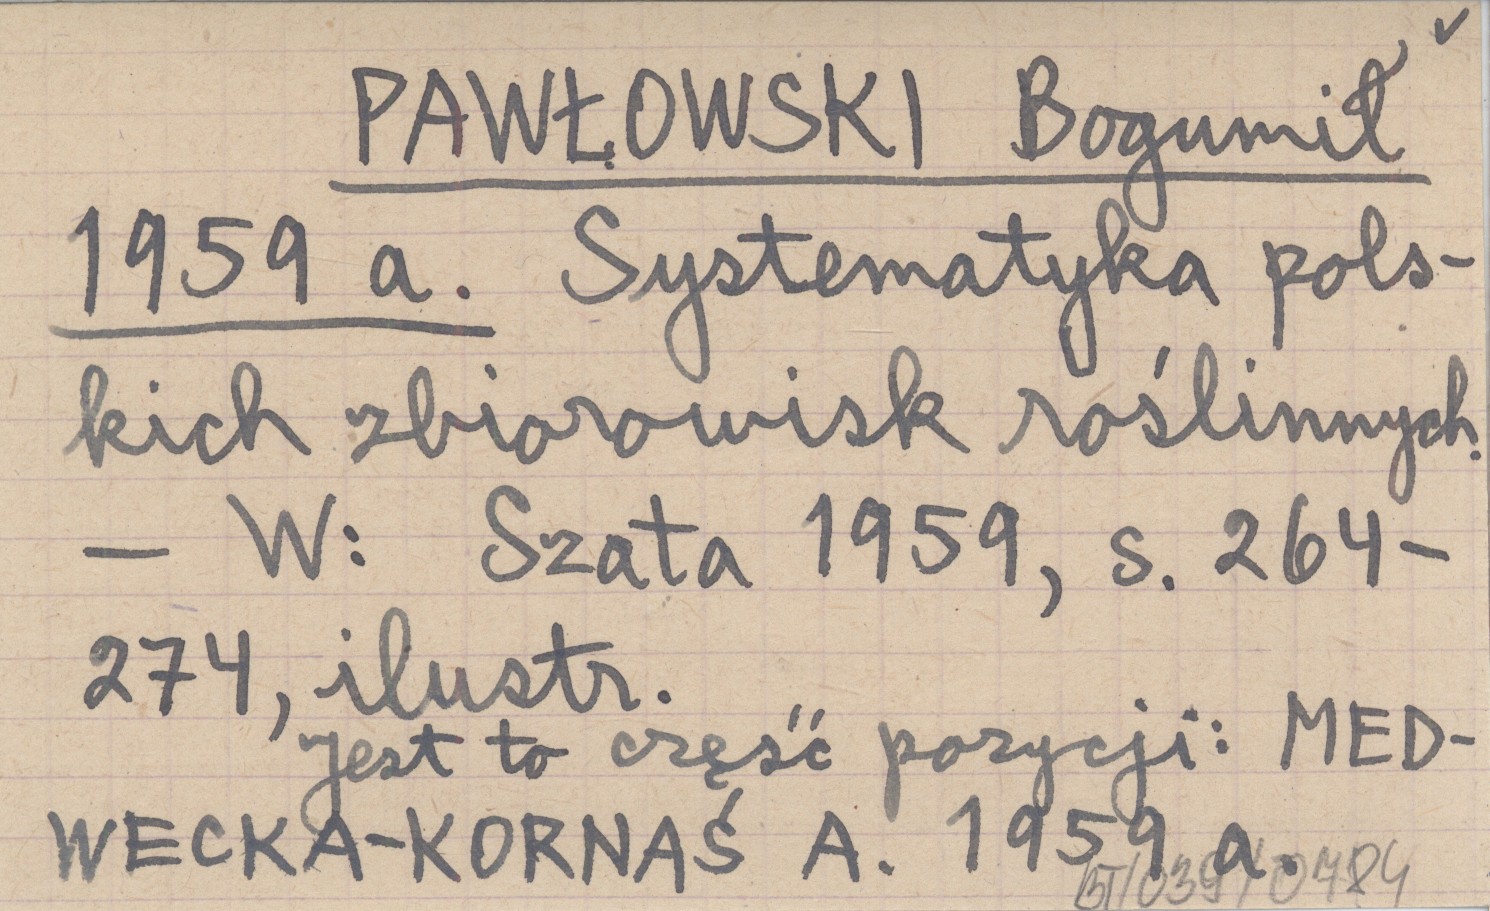 PAWŁOWSKI Bogumił
1959 a. Systematyka pols-
kich zbiorowisk roślinnych.
— W: Szata 1959, s. 264-
274, ilustr.
Jest to część pozycji: MED-
WECKA-KORNAŚ A. 1959 a.
BT/039/0784